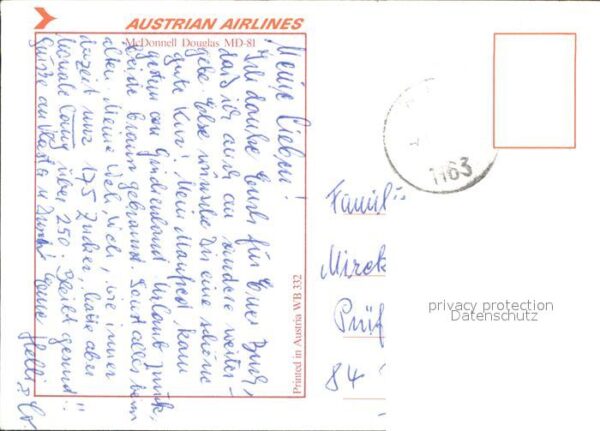 AUSTRIAN AIRLINES
McDonnell Douglas MD-81
Meine Lieben!
Ich danke Euch für Euer Buch,
daß ich auch an andere weiter-
gebe. Else wünsche Dir eine schöne
gute Kur! Mein Manfred kam
gestern von Griechenland Urlaub zurück,
beide braun gebrannt. Sonst alles beim
alten. Meine wie immer
derzeit nur 175 Zucker, hatte aber
über 250. Bleibt gesund!!
Grüße an
Eure Helli
Printed in Austria WB 332
1163
Famili
Mirek
Prüf
84
privacy protection
Datenschutz